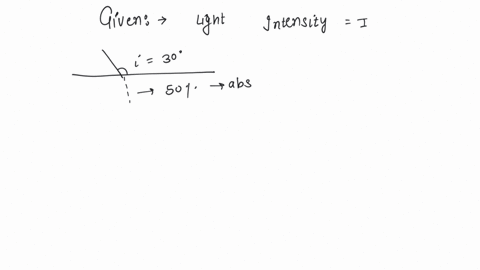 Given:→ Light Intensity = I
i = 30°
→ 50%. → abs